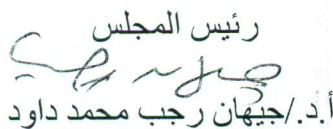 رئيس المجلس
أ.د./جيهان رجب محمد داود